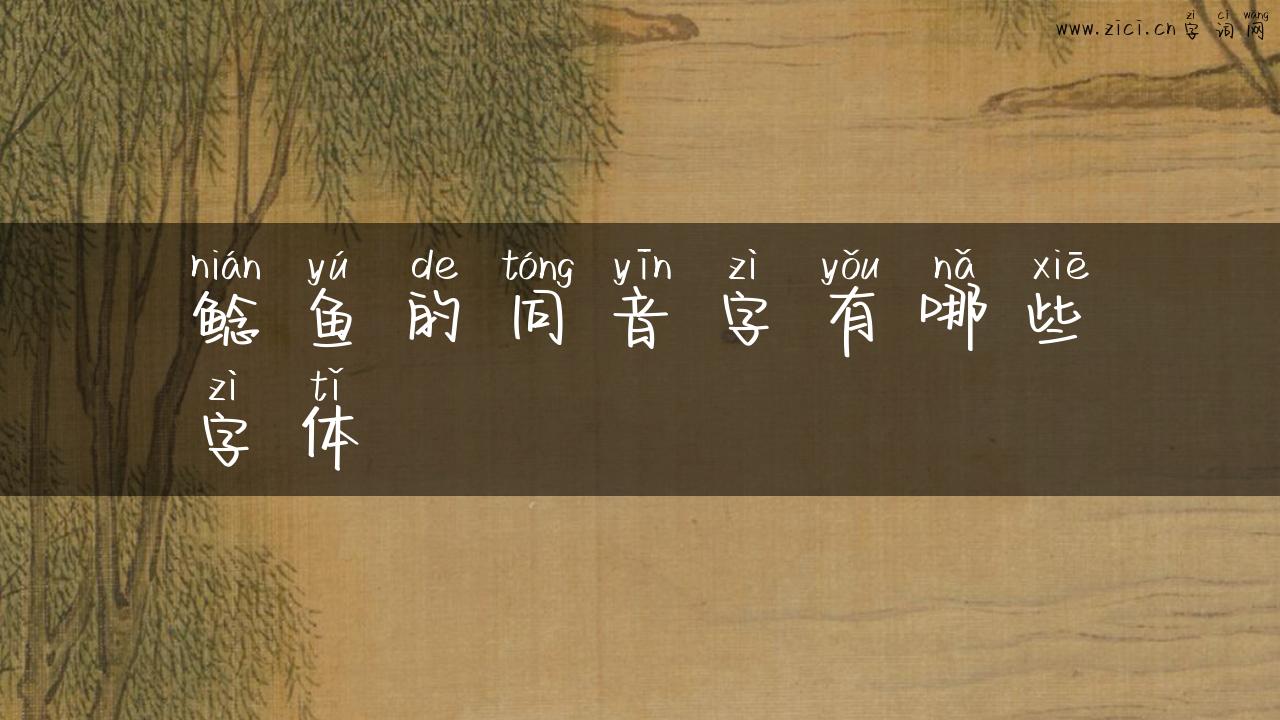 zì cí wǎng
www.zici.cn字词网
nián yú de tóng yīn zì yǒu nǎ xiē
鲶鱼的同音字有哪些
zì tǐ
字体